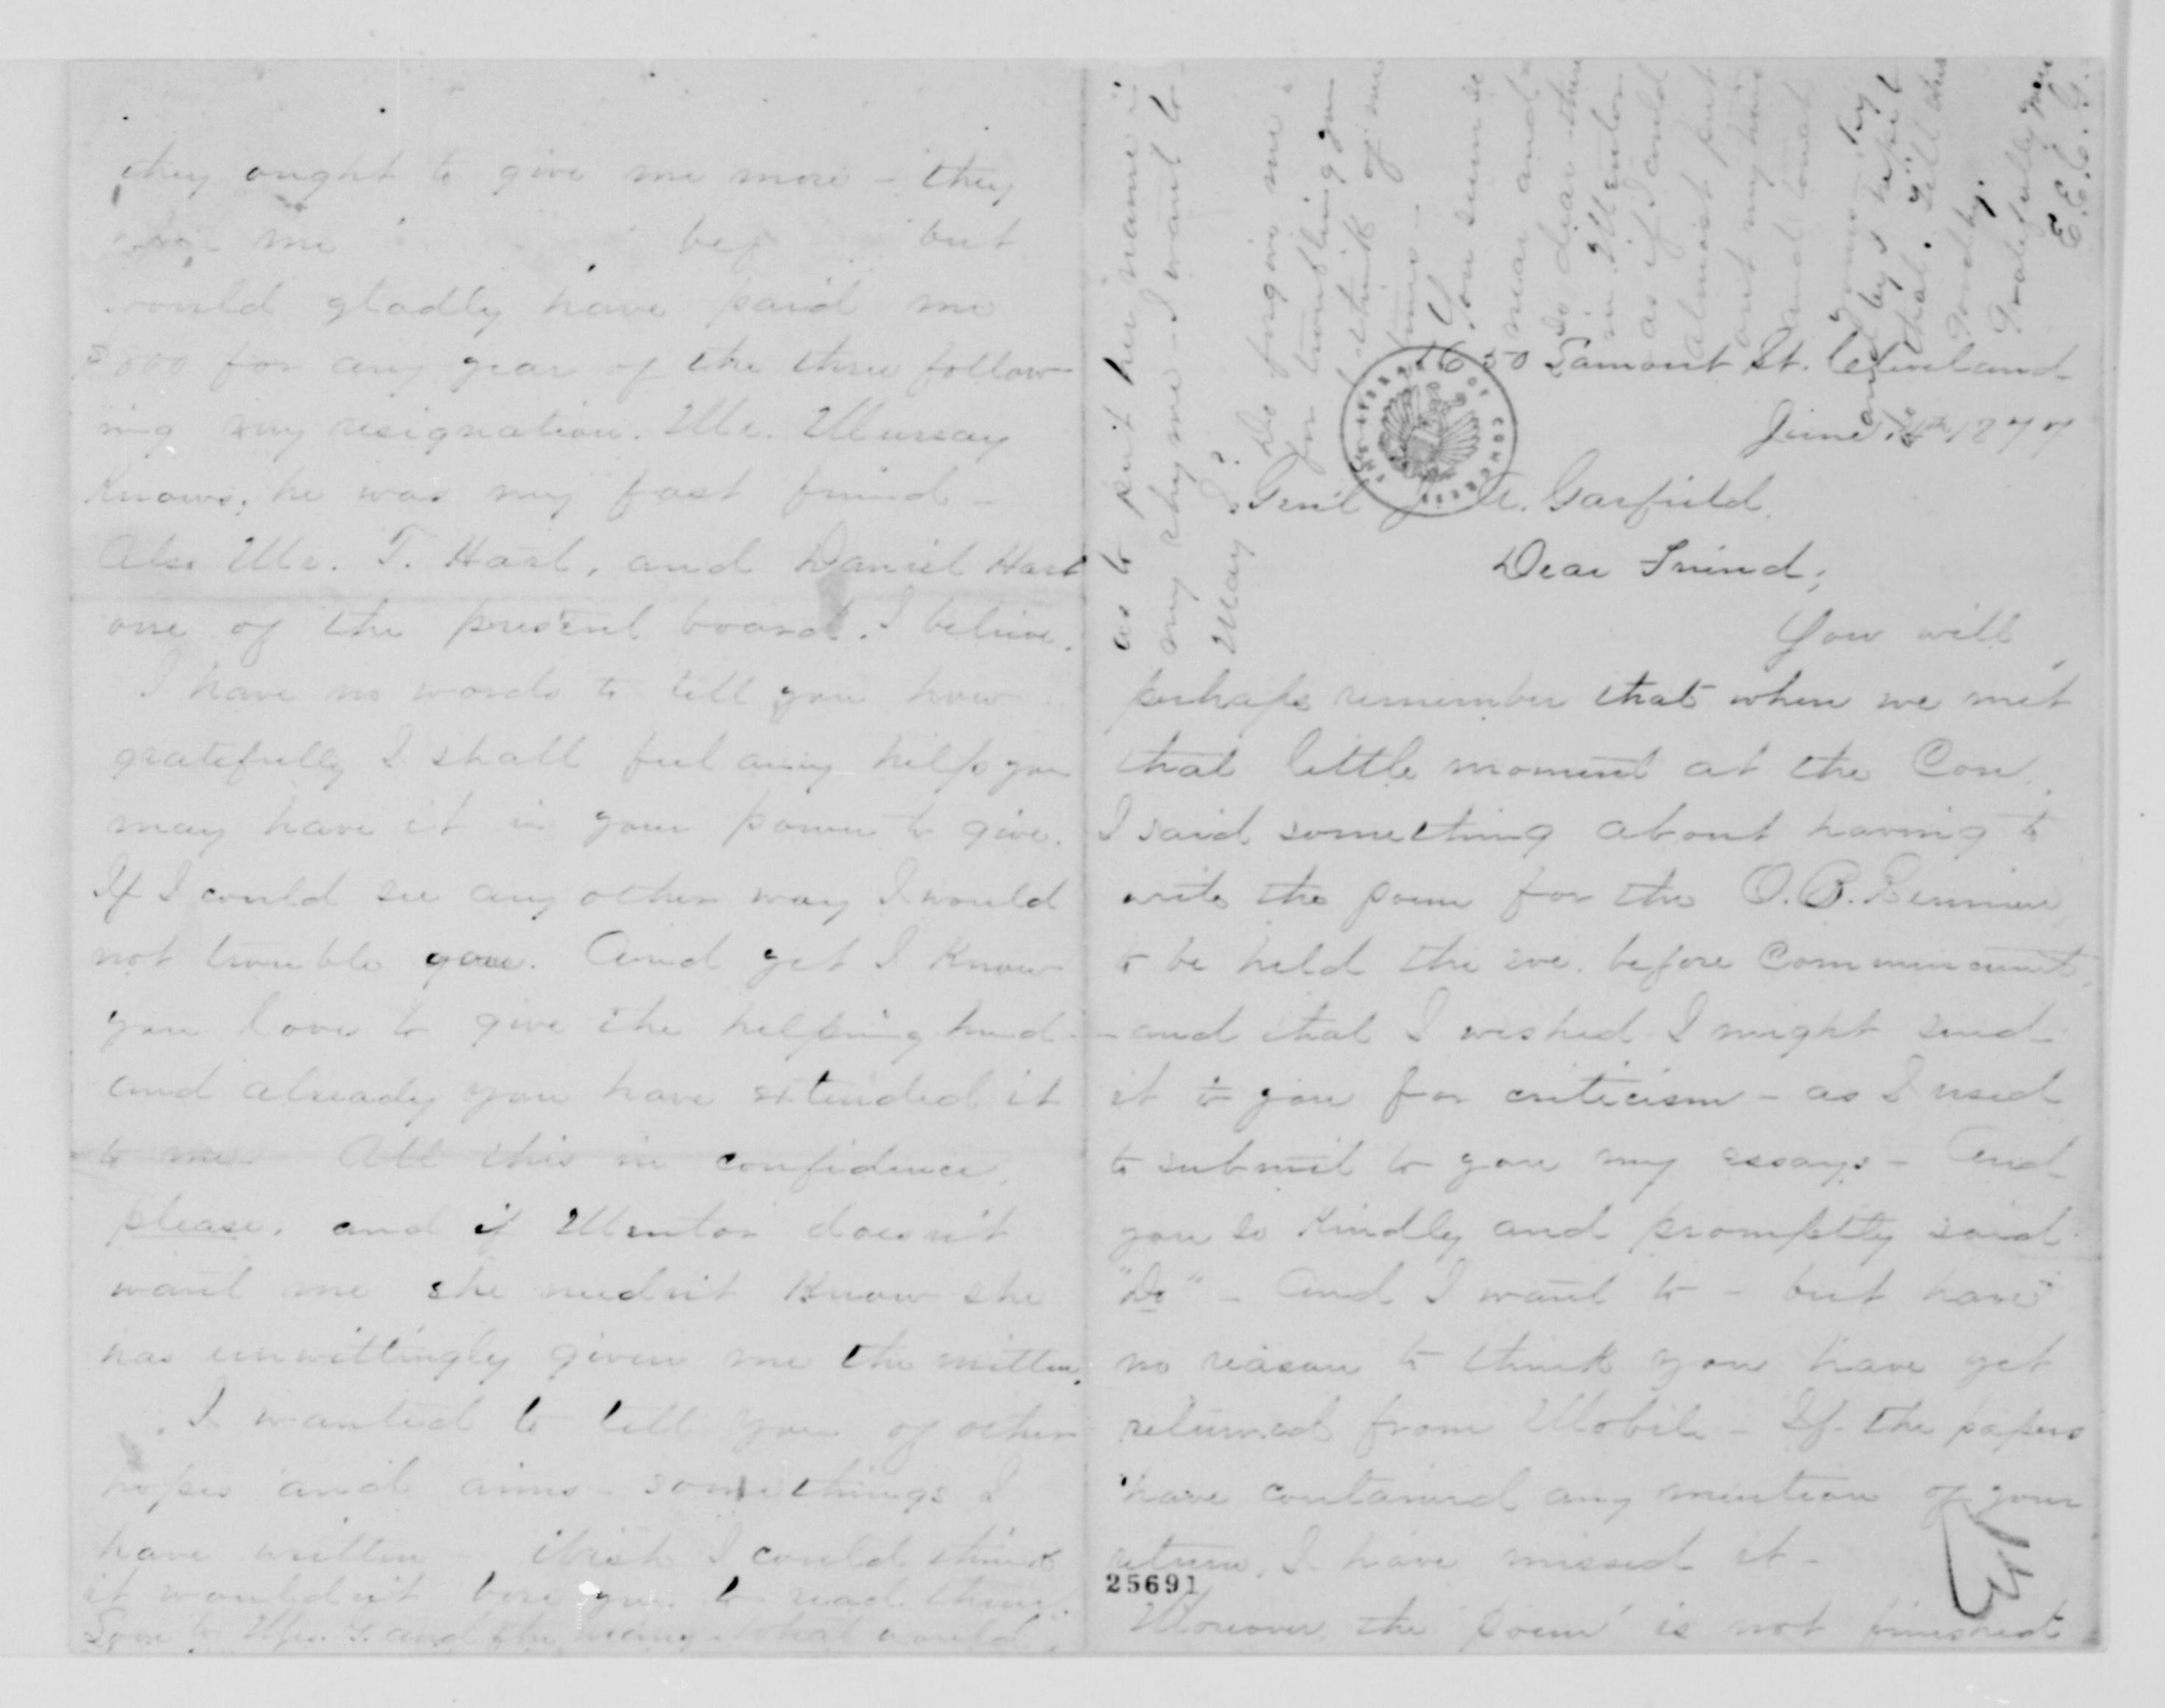 they ought to give me more - they
me but
would gladly have paid me
for any year of the three follow-
ing my resignation. Mr. Murray
knows, he was my fast friend -
Also Mr. T. Hart, and Daniel Hart
one of the present board. I believe.
I have no words to tell you how
gratefully I shall feel any help you
may have it in your power to give.
If I could see any other way I would
not trouble you. And yet I know
you love to give the helping hand -
and already you have extended it
to me. All this in confidence,
please, and if Mentor doesn't
want me she needn't know she
has unwittingly given me the mitten.
I wanted to tell you of other
hopes and aims - some things I
have written - wish I could think
it wouldn't bore you to read them.
Love to Mrs. G. and the many what would
Lamont St. Cleveland
June 1877
Gen'l J. A. Garfield.
Dear Friend;
You will
perhaps remember that when we met
that little moment at the Con.
I said something about having to
write the poem for the O.B. Reunion
to be held the eve. before Commencement,
- and that I wished I might send
it to you for criticism - as I used
to submit to you my essays - And
you so kindly and promptly said
"Do" - And I want to - but have
no reason to think you have yet
returned from Mobile - If the papers
have contained any mention of your
return, I have missed it -
25691
Moreover, the poem is not finished
as to put her name in
my rhyme - I want to
May I?
Do forgive me
for troubling you
I think of me
You seem so
near and
so dear there
in Mentor
as if I could
almost put
out my hand
and touch
yours
Goodby.
Gratefully yours
E. E. C. G.